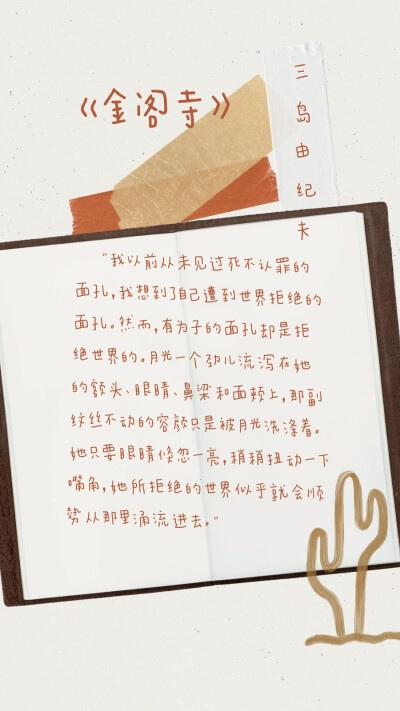 《金阁寺》
三岛由纪夫
“我以前从未见过死不认罪的
面孔，我想到了自己遭到世界拒绝的
面孔。然而，有为子的面孔却是拒
绝世界的。月光一个劲儿流泻在她
的额头、眼睛、鼻梁和面颊上，那副
纹丝不动的容颜只是被月光洗涤着。
她只要眼睛倏忽一亮，稍稍扭动一下
嘴角，她所拒绝的世界似乎就会顺
势从那里涌流进去。”